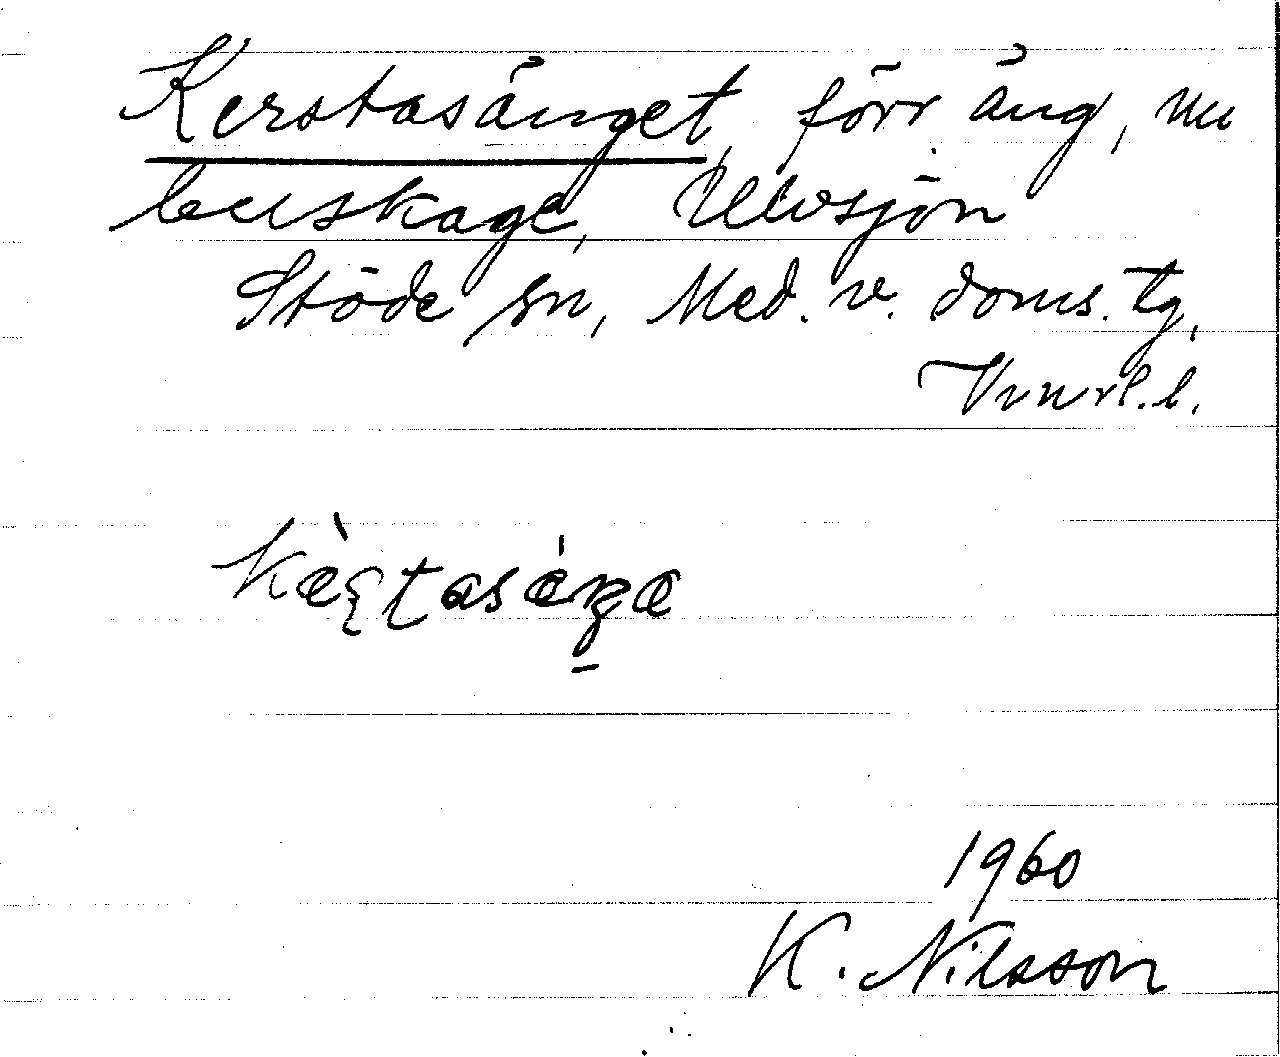 Kerstasänget, förr äng, nu
buskage, Ulvsjön
Stöde sn, Med. v. doms. tg,
Vnrl. l.
1960
K. Nilsson